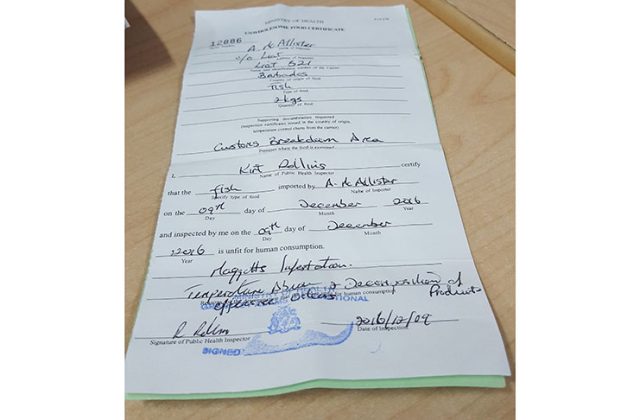 MINISTRY OF HEALTH
UNWHOLESOME FOOD CERTIFICATE
12886
A. Mc Allister
Name of Importer
c/o Liat
Liat 521
Barbados
Country of origin of food
Fish
Type of food
2 kgs
Quantity of food
Supporting documentation Inspected
(Inspection certificates issued in the country of origin,
temperature control charts from the carrier)
Customs Breakdown Area
Premises where the food is examined
I, Kirt Rollins certify
Name of Public Health Inspector
that the fish imported by A. Mc Allister
Specify type of food Name of Importer
on the 09th day of December 2016
Day Month Year
and inspected by me on the 09th day of December
Day Month
2016 is unfit for human consumption.
Year
Maggotts Infestation.
Temperature Abuse & Decomposition of
Products
offensive Odours
MINISTRY OF HEALTH
R Rollins 2016/12/09
Signature of Public Health Inspector Date of Inspection
SIGNED